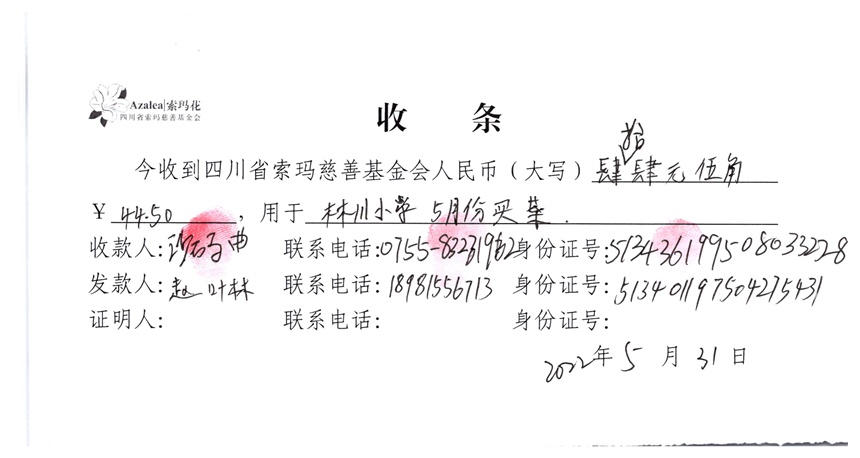 Azalea|索玛花
四川省索玛慈善基金会
收 条
今收到四川省索玛慈善基金会人民币（大写）肆拾肆元伍角
￥ 44.50 ，用于 林川小学 5月份买菜.
收款人: 联系电话:0755- 身份证号:513436199508033228
发款人: 赵叶林 联系电话: 18981556713 身份证号: 513401197504275431
证明人: 联系电话: 身份证号:
2022年5月31日